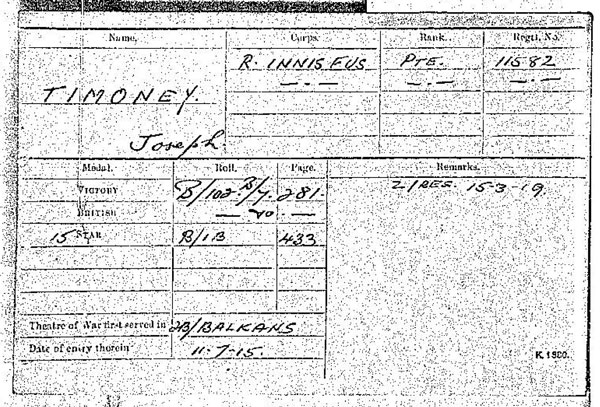 Name. Corps. Rank. Regtl. No.
R. INNIS FUS PTE. 11582
— . — — . — — . —
TIMONEY.
Joseph.
Medal. Roll. Page. Remarks.
VICTORY B/102 B/7. 281. Z/RES. 15-3-19.
BRITISH — do . —
15 STAR B/1B 433
Theatre of War first served in 2B/BALKANS
Date of entry therein 11-7-15.
K. 1380.